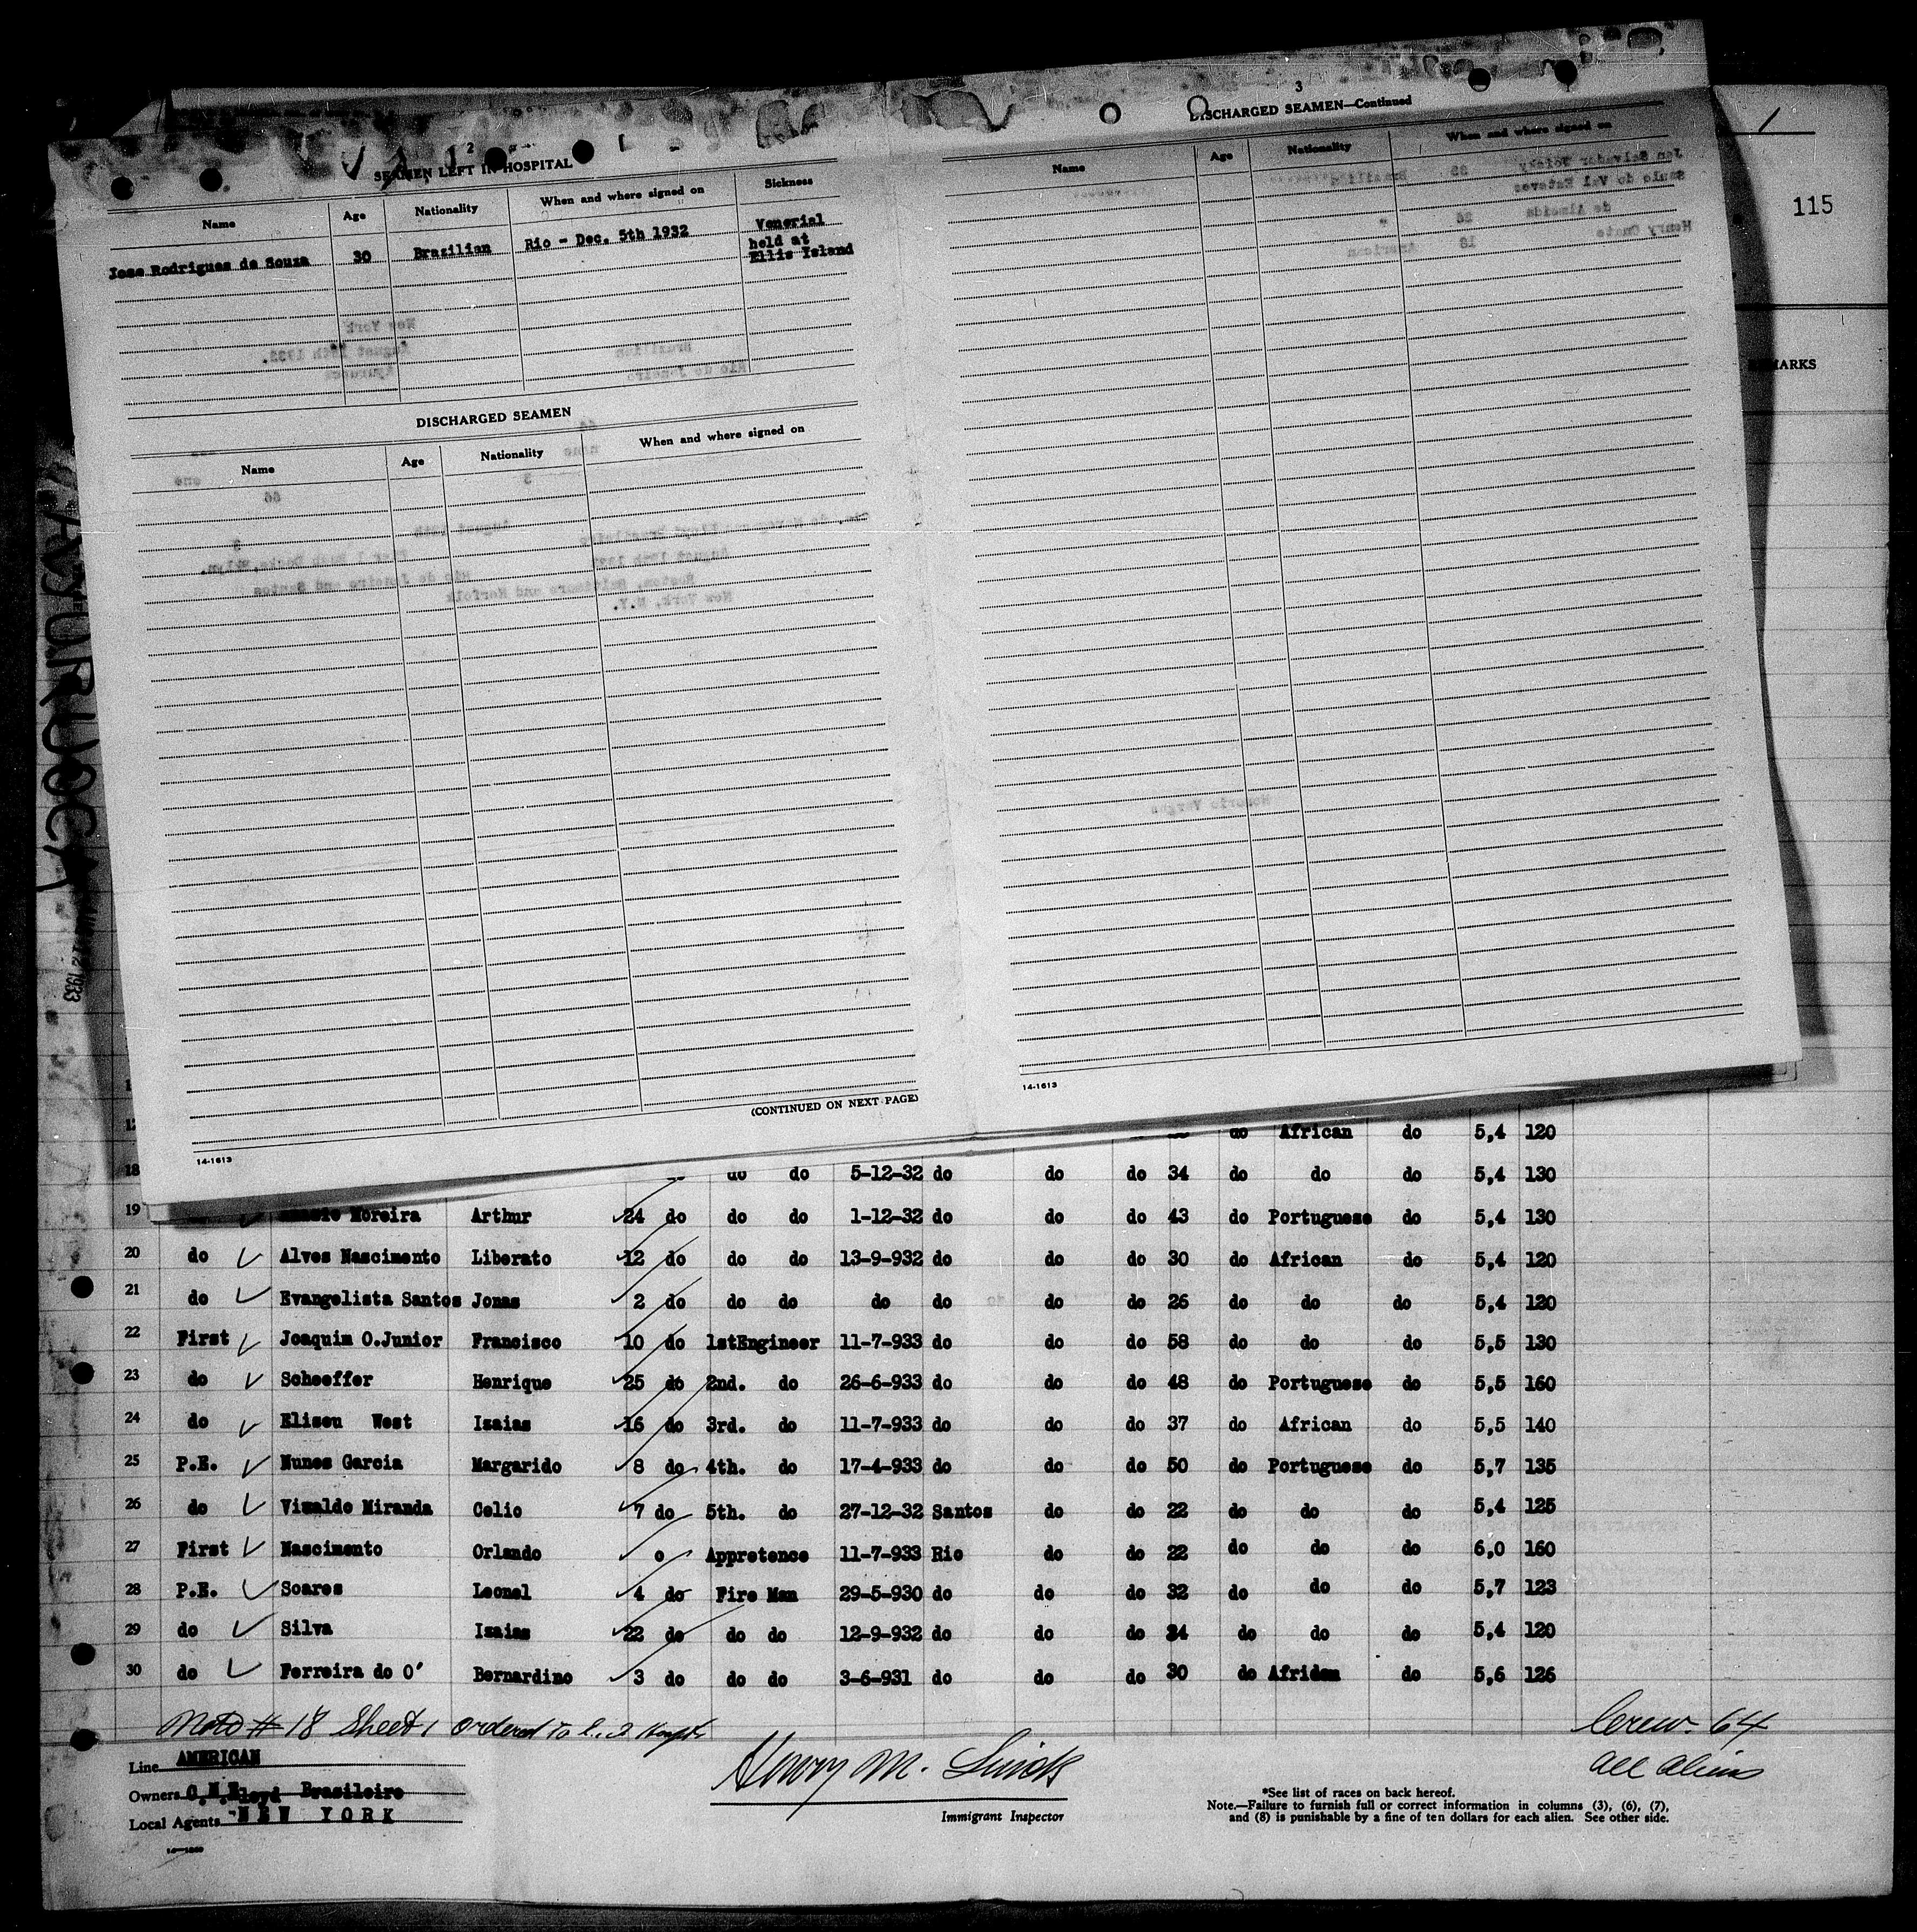 2
SEAMEN LEFT IN HOSPITAL
Name Age Nationality When and where signed on Sickness
Jose Rodrigues de Souza 30 Brazilian Rio - Dec. 5th 1932 Venerial
held at
Ellis Island
DISCHARGED SEAMEN
Name Age Nationality When and where signed on
(CONTINUED ON NEXT PAGE)
14-1613
3
DISCHARGED SEAMEN—Continued
Name Age Nationality When and where signed on
14-1613
115
MARKS
African do 5,4 120
18 do do 5-12-32 do do do 34 do do do 5,4 130
19 Moreira Arthur 24 do do do 1-12-32 do do do 43 do Portuguese do 5,4 130
20 do Alves Nascimento Liberato 12 do do do 13-9-932 do do do 30 do African do 5,4 120
21 do Evangelista Santos Jonas 2 do do do do do do do 26 do do do 5,4 120
22 First Joaquim O.Junior Francisco 10 do 1stEngineer 11-7-933 do do do 58 do do do 5,5 130
23 do Scheeffer Henrique 25 do 2nd. do 26-6-933 do do do 48 do Portuguese do 5,5 160
24 do Eliseu West Izaias 16 do 3rd. do 11-7-933 do do do 37 do African do 5,5 140
25 P.E. Nunes Garcia Margarido 8 do 4th. do 17-4-933 do do do 50 do Portuguese do 5,7 135
26 do Vimaldo Miranda Celio 7 do 5th. do 27-12-32 Santos do do 22 do do do 5,4 125
27 First Nascimento Orlando o Appretence 11-7-933 Rio do do 22 do do do 6,0 160
28 P.E. Soares Leonel 4 do Fire Man 29-5-930 do do do 32 do do do 5,7 123
29 do Silva Izaias 22 do do do 12-9-932 do do do 34 do do do 5,4 120
30 do Ferreira do O' Bernardino 3 do do do 3-6-931 do do do 30 do African do 5,6 126
Note # 18 Sheet 1 ordered to
Crew. 64
all aliens
Line AMERICAN
Owners C.N.Lloyd Brasileiro
Local Agents NEW YORK
Henry M.
Immigrant Inspector
*See list of races on back hereof.
Note.—Failure to furnish full or correct information in columns (3), (6), (7),
and (8) is punishable by a fine of ten dollars for each alien. See other side.